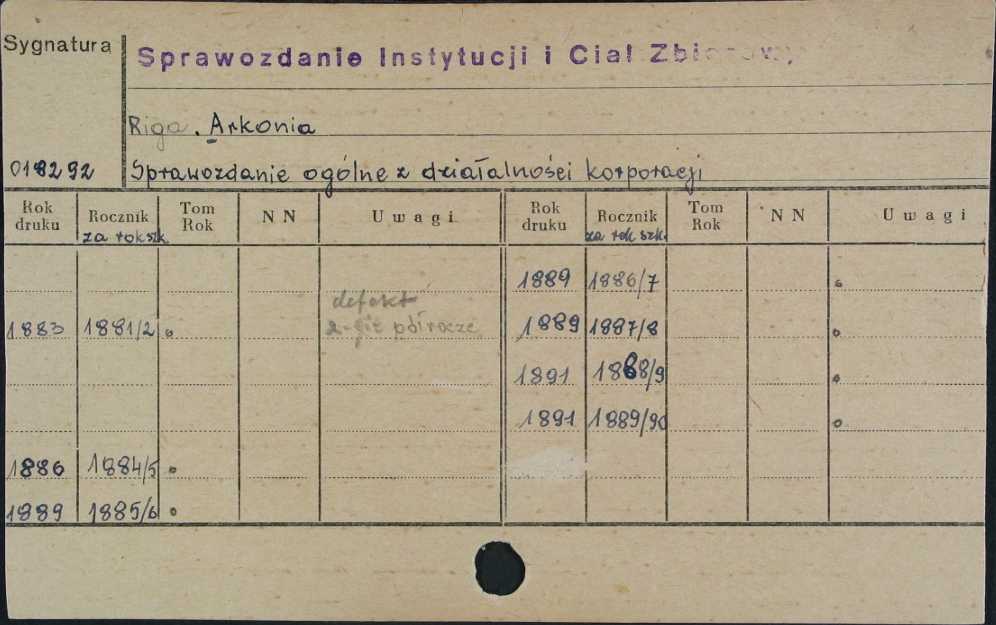 Sygnatura
Sprawozdanie Instytucji i Ciał Zbiorowy
Riga. Arkonia
018292 Sprawozdanie ogólne z działalności korporacji
Rok druku Rocznik za rok szk. Tom Rok NN Uwagi Rok druku Rocznik za rok szk. Tom Rok NN Uwagi
1889 1886/7 o
defekt
1883 1881/2 o 2-gie półrocze 1889 1887/8 o
1891 1888/9 o
1891 1889/90 o
1886 1884/5 o
1889 1885/6 o